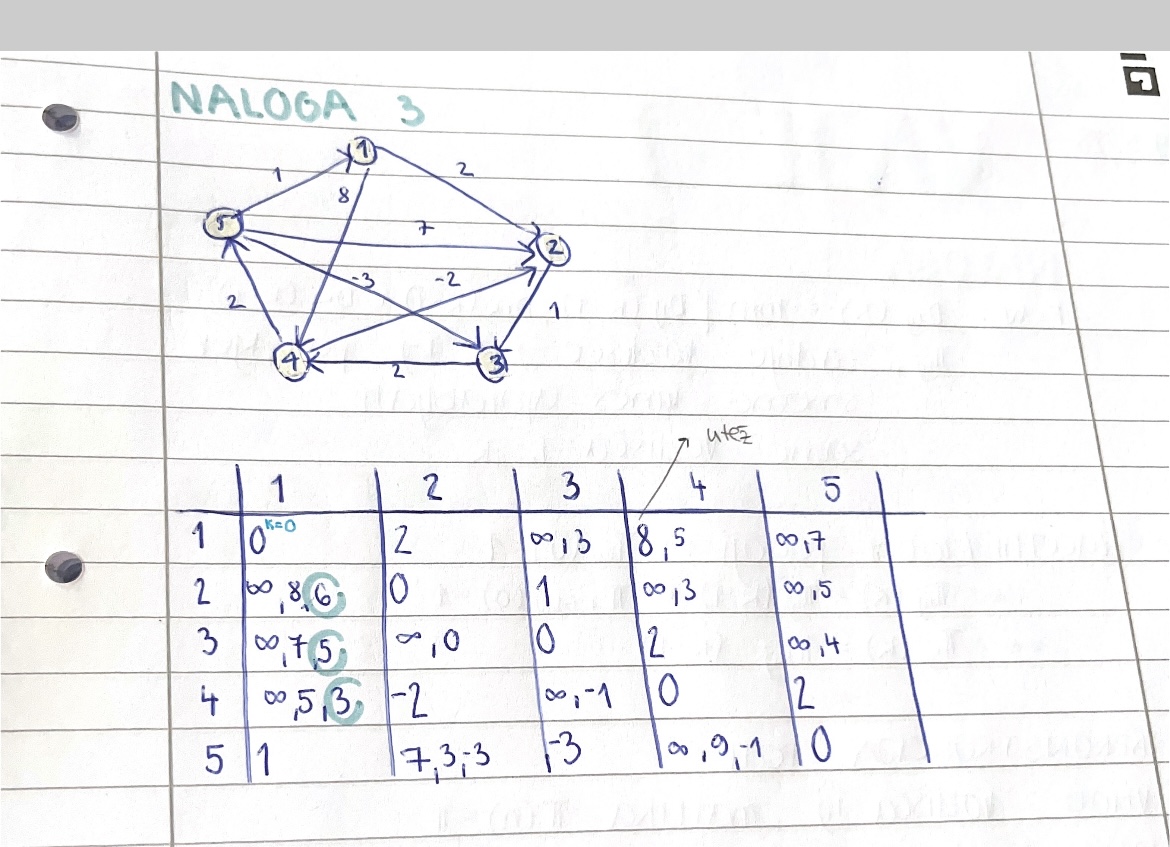 NALOGA 3
1
1
2
8
5
7
2
-3
-2
2
1
4
3
2
utež
1 2 3 4 5
1 0 k=0 2 ∞,3 8,5 ∞,7
2 ∞,8,6 0 1 ∞,3 ∞,5
3 ∞,7,5 ∞,0 0 2 ∞,4
4 ∞,5,3 -2 ∞,-1 0 2
5 1 7,3,-3 -3 ∞,9,-1 0